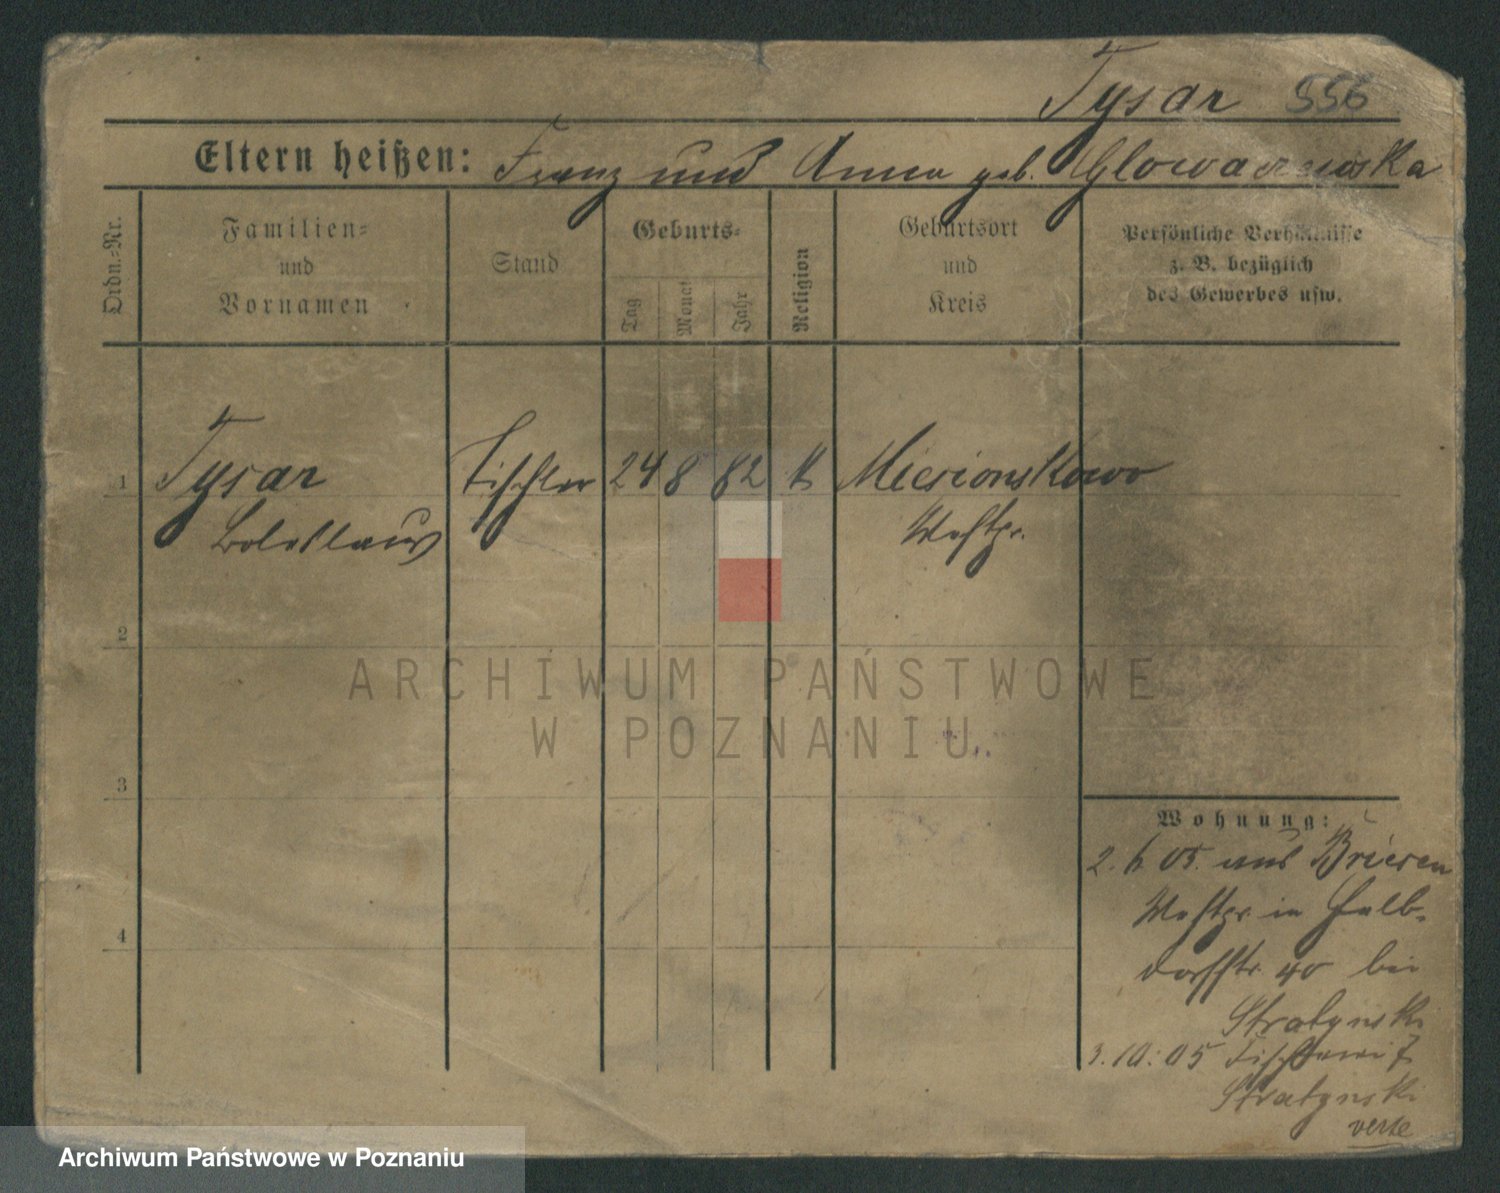 Tysar 556
Eltern heißen: Franz und Anna geb. Glowaczewska
Ordn.-Nr.
Familien-
und
Vornamen
Stand
Geburts-
Tag
Monat
Jahr
Religion
Geburtsort
und
Kreis
Persönliche Verhältnisse
z. B. bezüglich
des Gewerbes usw.
1 Tysar Tischler 24 8 82 k Miesionskowo
Boleslaus Westpr.
2
3
4
Wohnung:
2. 6 05. aus Briesen
Westpr. in Halb-
dorfstr. 40 bei
Stratynski
3. 10. 05 7
Stratynski
verte
ARCHIWUM PAŃSTWOWE
W POZNANIU
Archiwum Państwowe w Poznaniu